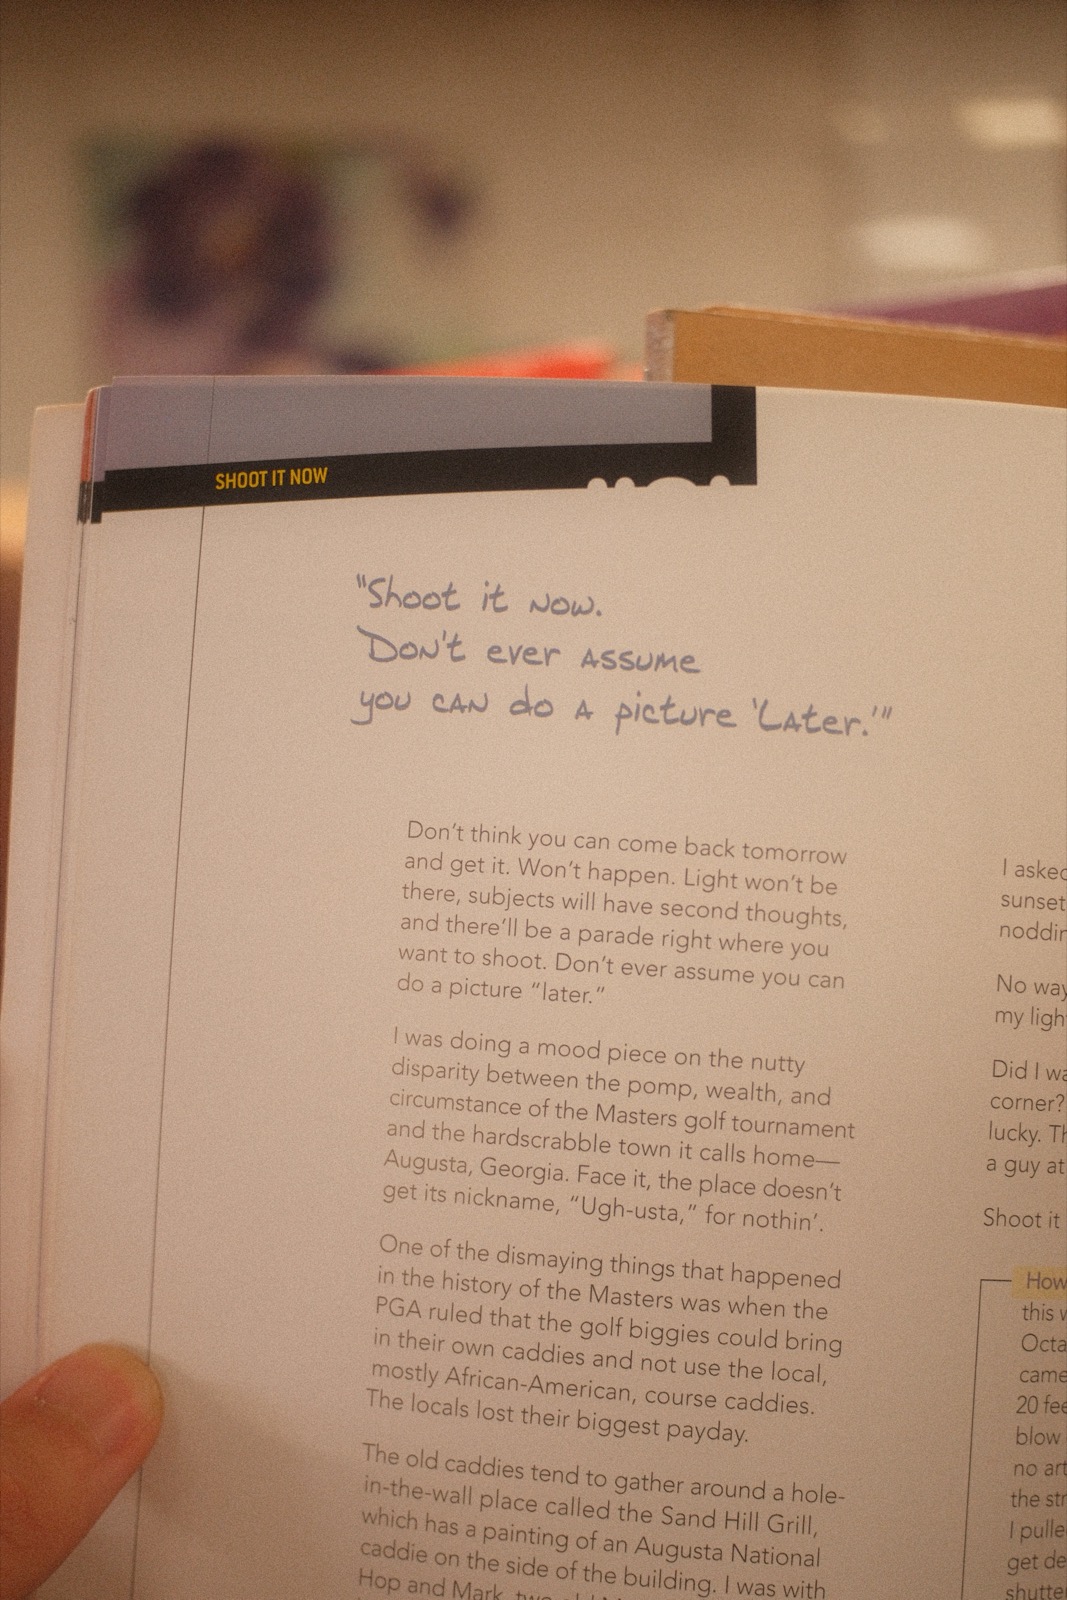 SHOOT IT NOW
"Shoot it now.
Don't ever assume
you can do a picture 'Later.'"
Don't think you can come back tomorrow
and get it. Won't happen. Light won't be
there, subjects will have second thoughts,
and there'll be a parade right where you
want to shoot. Don't ever assume you can
do a picture "later."
I was doing a mood piece on the nutty
disparity between the pomp, wealth, and
circumstance of the Masters golf tournament
and the hardscrabble town it calls home—
Augusta, Georgia. Face it, the place doesn't
get its nickname, "Ugh-usta," for nothin'.
One of the dismaying things that happened
in the history of the Masters was when the
PGA ruled that the golf biggies could bring
in their own caddies and not use the local,
mostly African-American, course caddies.
The locals lost their biggest payday.
The old caddies tend to gather around a hole-
in-the-wall place called the Sand Hill Grill,
which has a painting of an Augusta National
caddie on the side of the building. I was with
Hop and Mark, two old
I asked
sunset
noddin
No way
my ligh
Did I wa
corner?
lucky. Th
a guy at
Shoot it
How
this w
Octa
came
20 fee
blow
no art
the str
I pulle
get de
shutte